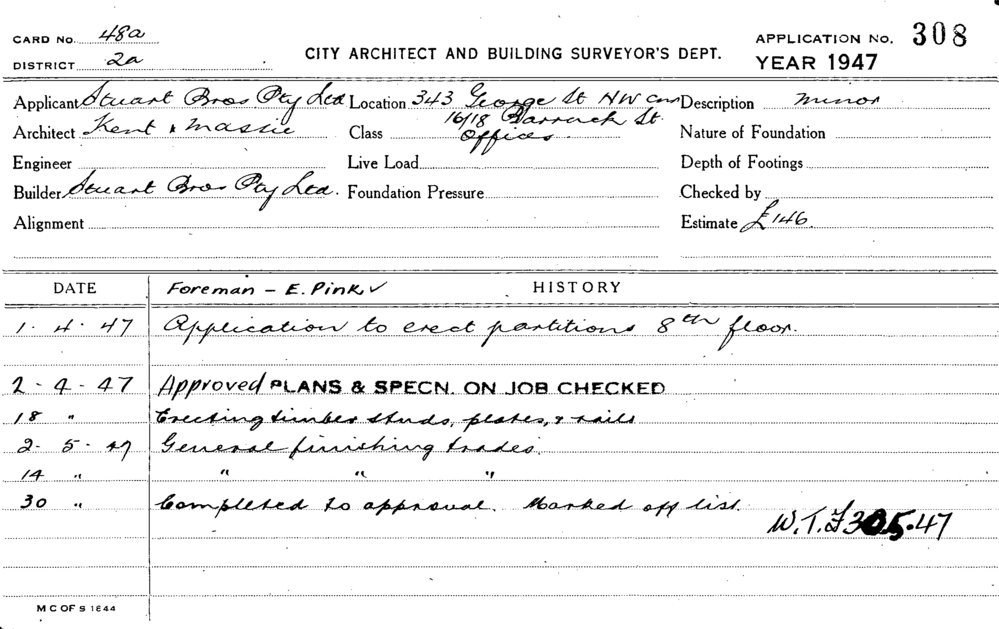 CARD No. 48a
DISTRICT 2a
CITY ARCHITECT AND BUILDING SURVEYOR'S DEPT.
APPLICATION No. 308
YEAR 1947
Applicant Stuart Bros Pty Ltd Location 343 George St NW cnr Description minor
16/18 Barrack St.
Architect Kent & Massie Class Offices Nature of Foundation
Engineer Live Load Depth of Footings
Builder Stuart Bros Pty Ltd. Foundation Pressure Checked by
Alignment Estimate £146.
DATE Foreman - E. Pink ✓ HISTORY
1. 4. 47 Application to erect partitions 8th floor.
2 - 4 - 47 Approved PLANS & SPECN. ON JOB CHECKED
18 " Erecting timber studs, plates, & rails
2. 5. 47 General finishing trades.
14 " " " "
30 " Completed to approval. Marked off list.
W.T.F 30.5.47
M C OF S 1644